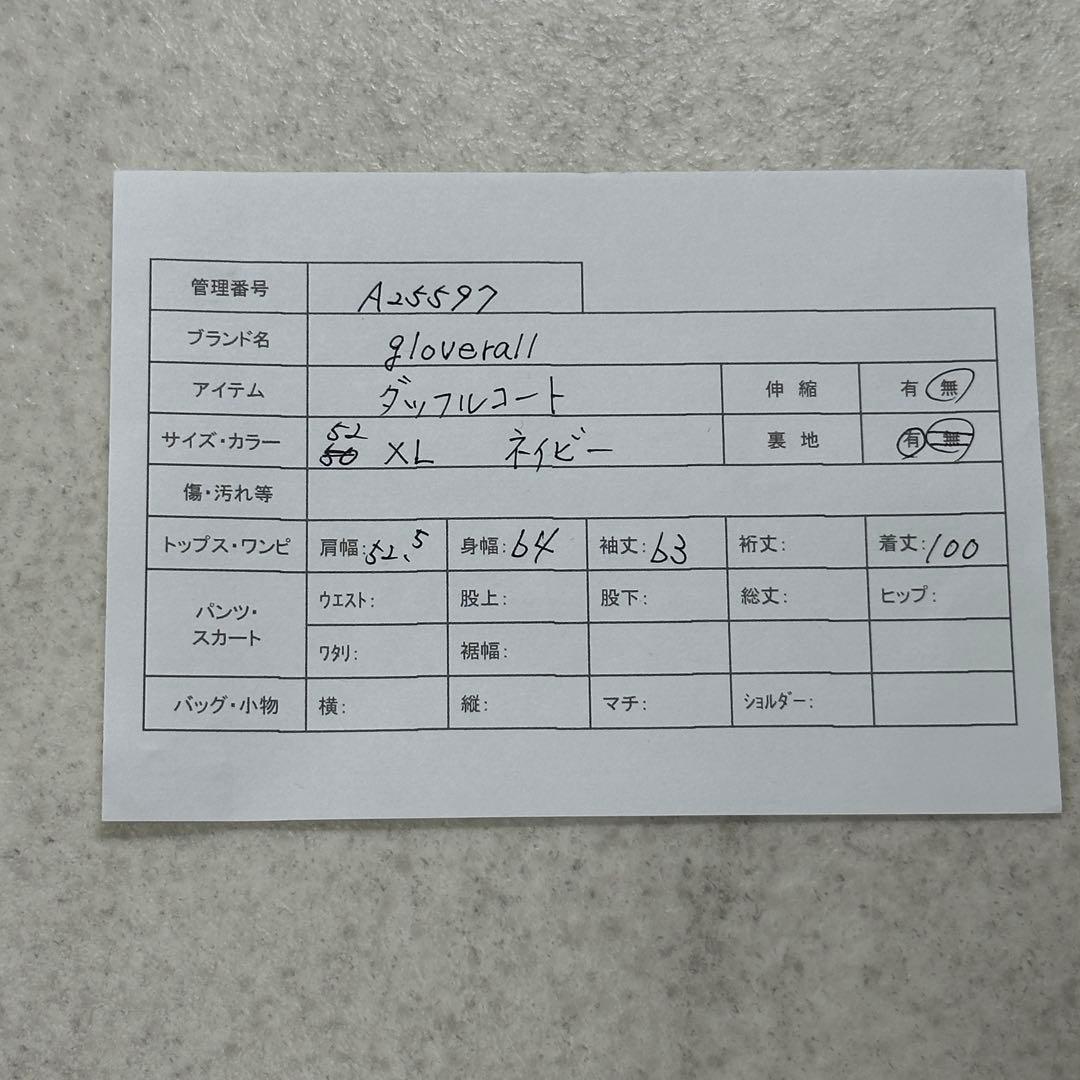 管理番号 A25597
ブランド名 gloverall
アイテム ダッフルコート 伸縮 有 無
サイズ・カラー 52 50 XL ネイビー 裏地 有 無
傷・汚れ等
トップス・ワンピ 肩幅:52.5 身幅:64 袖丈:63 裄丈: 着丈:100
パンツ・スカート ウエスト: 股上: 股下: 総丈: ヒップ:
ワタリ: 裾幅:
バッグ・小物 横: 縦: マチ: ショルダー: